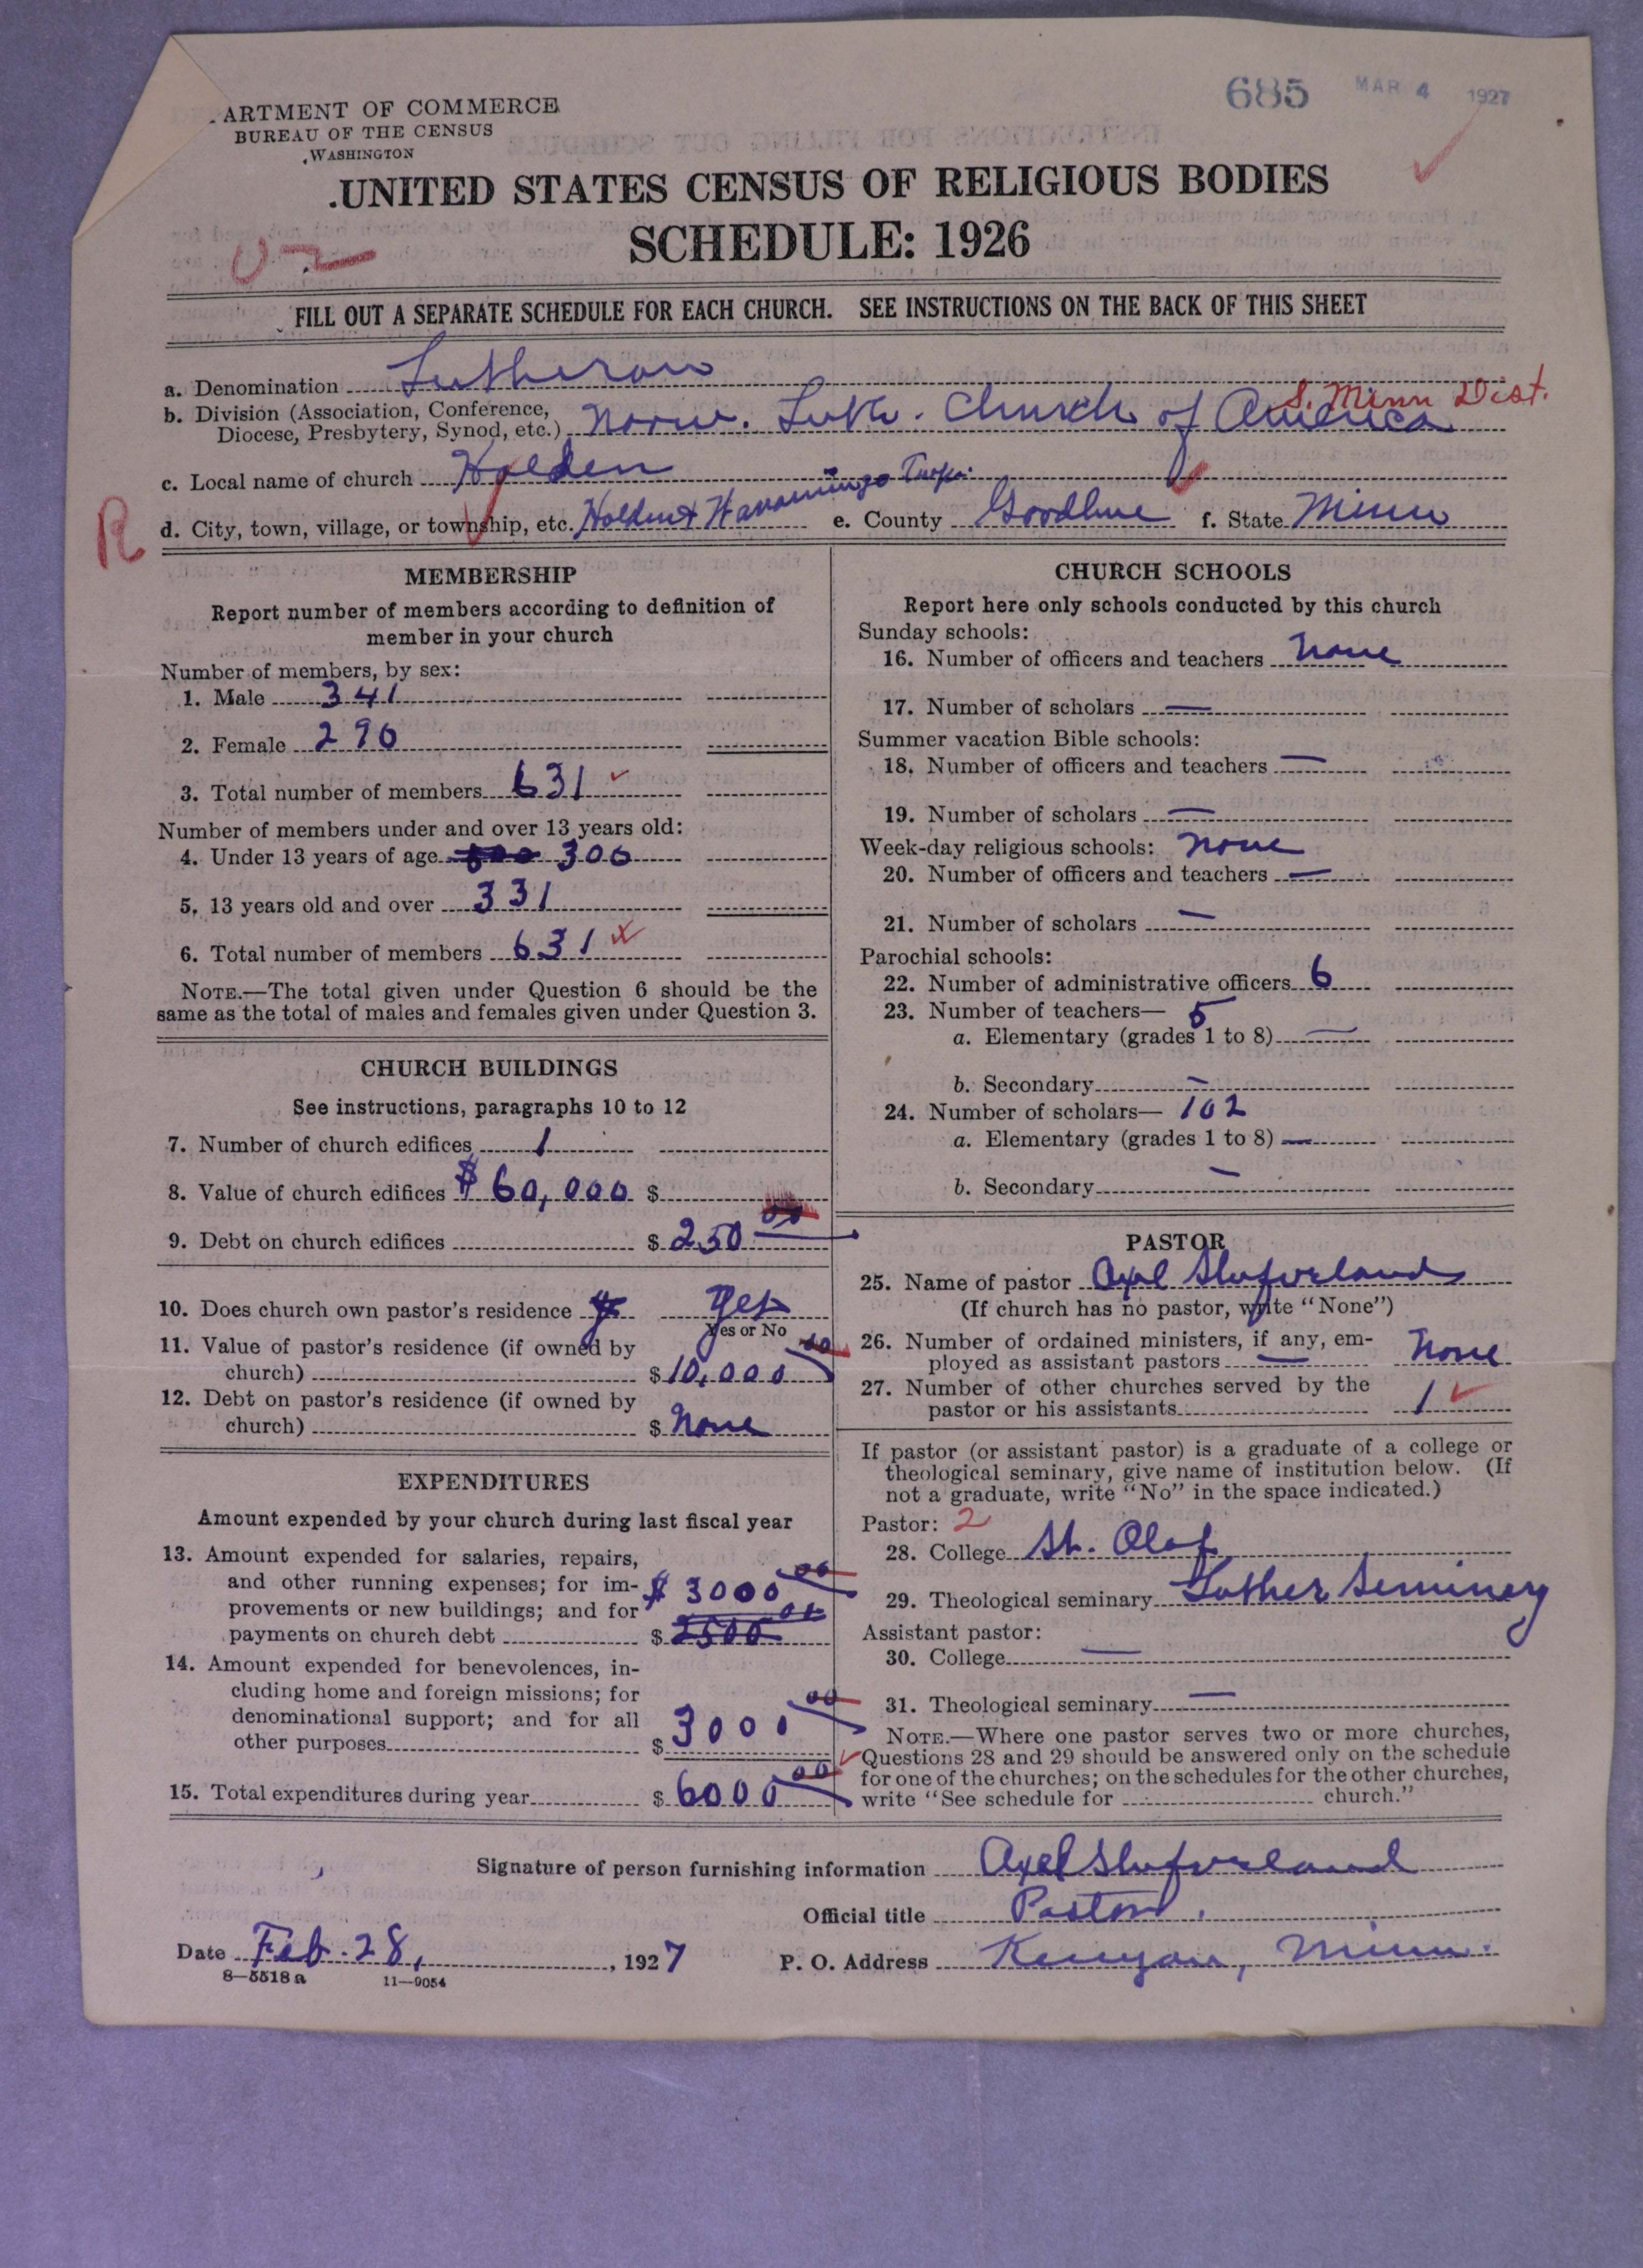 685 MAR 4 1927
ARTMENT OF COMMERCE
BUREAU OF THE CENSUS
WASHINGTON
UNITED STATES CENSUS OF RELIGIOUS BODIES
SCHEDULE: 1926
FILL OUT A SEPARATE SCHEDULE FOR EACH CHURCH. SEE INSTRUCTIONS ON THE BACK OF THIS SHEET
a. Denomination Lutheran
S. Minn Dist.
b. Division (Association, Conference,
Diocese, Presbytery, Synod, etc.) Norw. Luth. Church of America
c. Local name of church Holden
R d. City, town, village, or township, etc. Holden & Wanamingo Twps. e. County Goodhue f. State Minn
MEMBERSHIP
Report number of members according to definition of
member in your church
Number of members, by sex:
1. Male 341
2. Female 290
3. Total number of members 631
Number of members under and over 13 years old:
4. Under 13 years of age 300
5. 13 years old and over 331
6. Total number of members 631
NOTE.—The total given under Question 6 should be the
same as the total of males and females given under Question 3.
CHURCH BUILDINGS
See instructions, paragraphs 10 to 12
7. Number of church edifices 1
8. Value of church edifices $60,000 $
9. Debt on church edifices $ 250 00
10. Does church own pastor's residence Yes
Yes or No
11. Value of pastor's residence (if owned by
church) $ 10,000 00
12. Debt on pastor's residence (if owned by
church) $ None
EXPENDITURES
Amount expended by your church during last fiscal year
13. Amount expended for salaries, repairs,
and other running expenses; for im-
provements or new buildings; and for
payments on church debt $ 3000 00
$ 2500 00
14. Amount expended for benevolences, in-
cluding home and foreign missions; for
denominational support; and for all
other purposes $ 3000 00
15. Total expenditures during year $ 6000 00
CHURCH SCHOOLS
Report here only schools conducted by this church
Sunday schools:
16. Number of officers and teachers None
17. Number of scholars —
Summer vacation Bible schools:
18. Number of officers and teachers —
19. Number of scholars —
Week-day religious schools: None
20. Number of officers and teachers —
21. Number of scholars —
Parochial schools:
22. Number of administrative officers 6
23. Number of teachers— 5
a. Elementary (grades 1 to 8) —
b. Secondary —
24. Number of scholars— 102
a. Elementary (grades 1 to 8) —
b. Secondary —
PASTOR
25. Name of pastor Axel
(If church has no pastor, write "None")
26. Number of ordained ministers, if any, em-
ployed as assistant pastors — None
27. Number of other churches served by the
pastor or his assistants 1
If pastor (or assistant pastor) is a graduate of a college or
theological seminary, give name of institution below. (If
not a graduate, write "No" in the space indicated.)
Pastor: 2
28. College St. Olaf
29. Theological seminary Luther Seminery
Assistant pastor:
30. College —
31. Theological seminary —
NOTE.—Where one pastor serves two or more churches,
Questions 28 and 29 should be answered only on the schedule
for one of the churches; on the schedules for the other churches,
write "See schedule for church."
Signature of person furnishing information Axel
Official title Pastor.
Date Feb. 28, 1927 P. O. Address Kenyon, Minn.
8—5518 a 11—9054